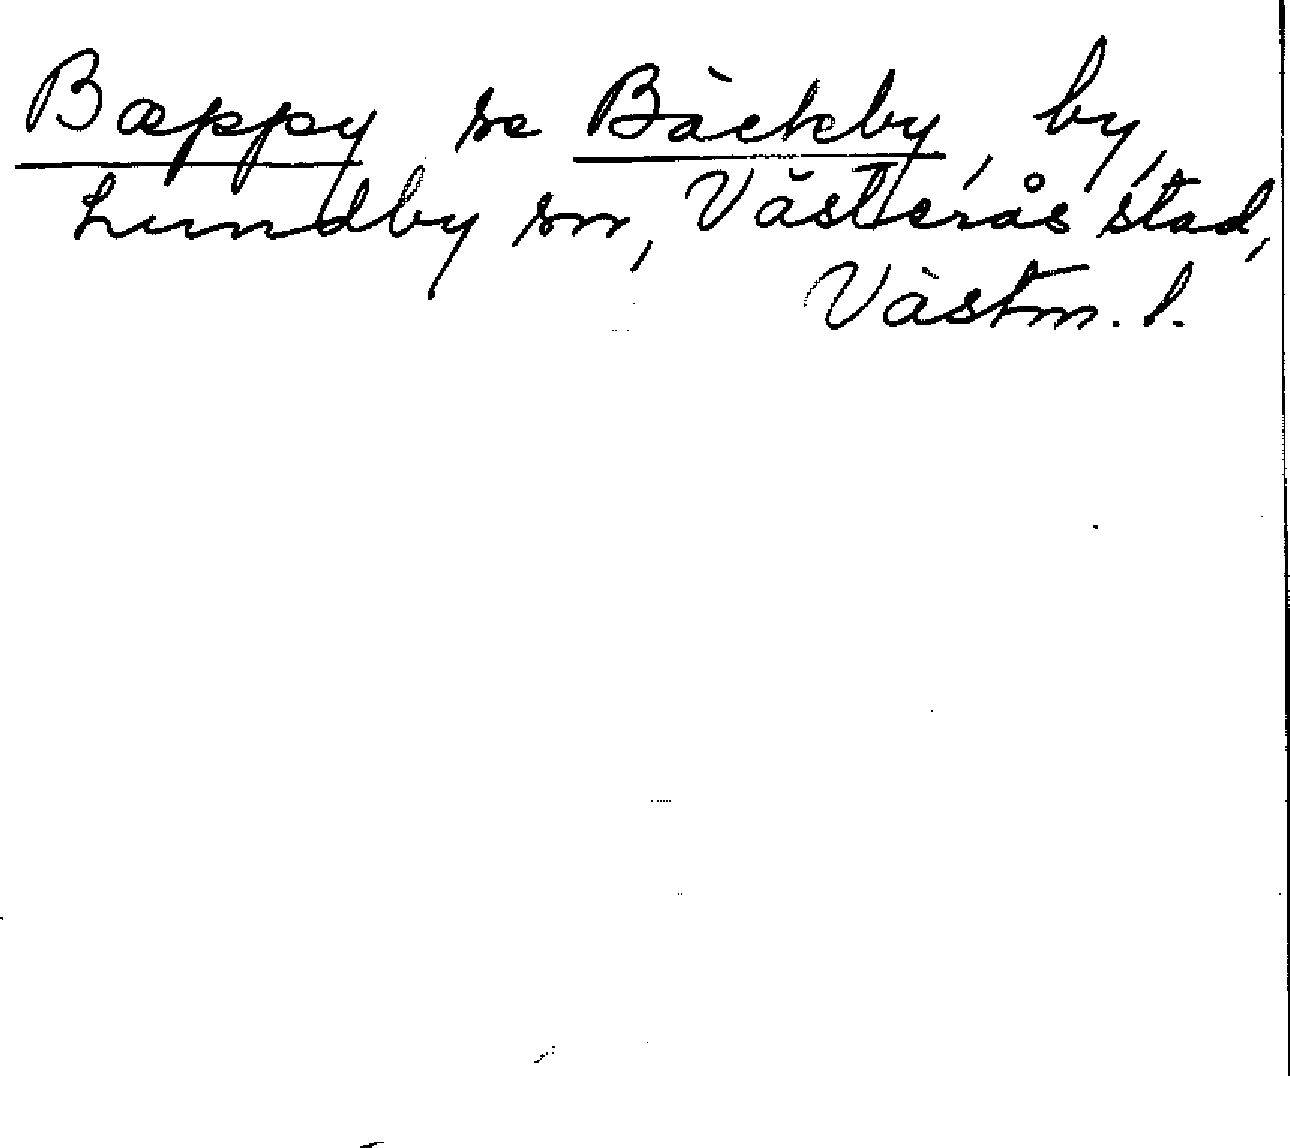 Bæppy se Bäckby, by,
Lundby sn, Västerås stad,
Västm. l.